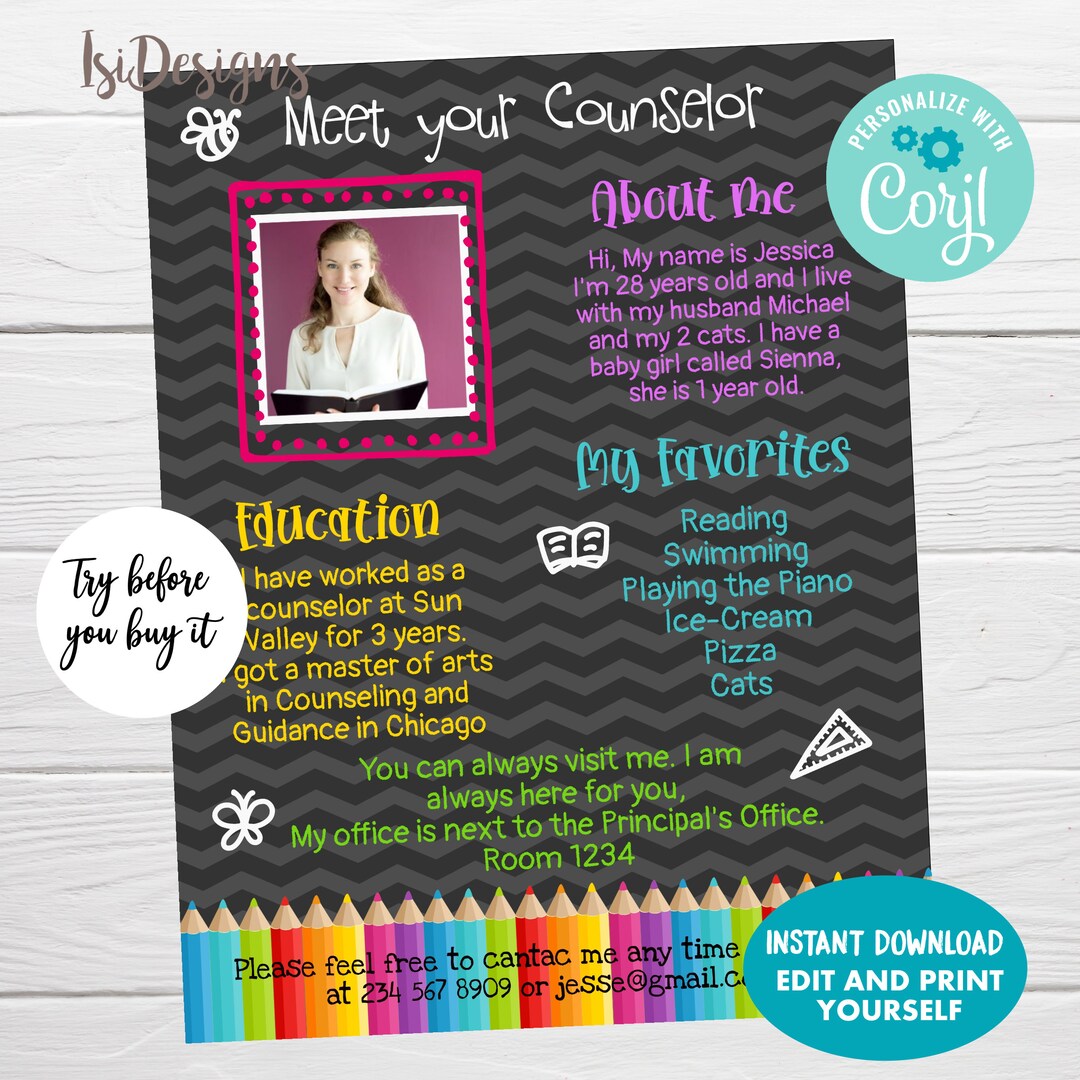 IsiDesigns
Meet your Counselor
PERSONALIZE WITH
Corjl
About me
Hi, My name is Jessica
I'm 28 years old and I live
with my husband Michael
and my 2 cats. I have a
baby girl called Sienna,
she is 1 year old.
My Favorites
Reading
Swimming
Playing the Piano
Ice-Cream
Pizza
Cats
Education
I have worked as a
counselor at Sun
Valley for 3 years.
got a master of arts
in Counseling and
Guidance in Chicago
Try before
you buy it
You can always visit me. I am
always here for you,
My office is next to the Principal's Office.
Room 1234
Please feel free to cantac me any time
at 234 567 8909 or jesse@gmail.co
INSTANT DOWNLOAD
EDIT AND PRINT
YOURSELF